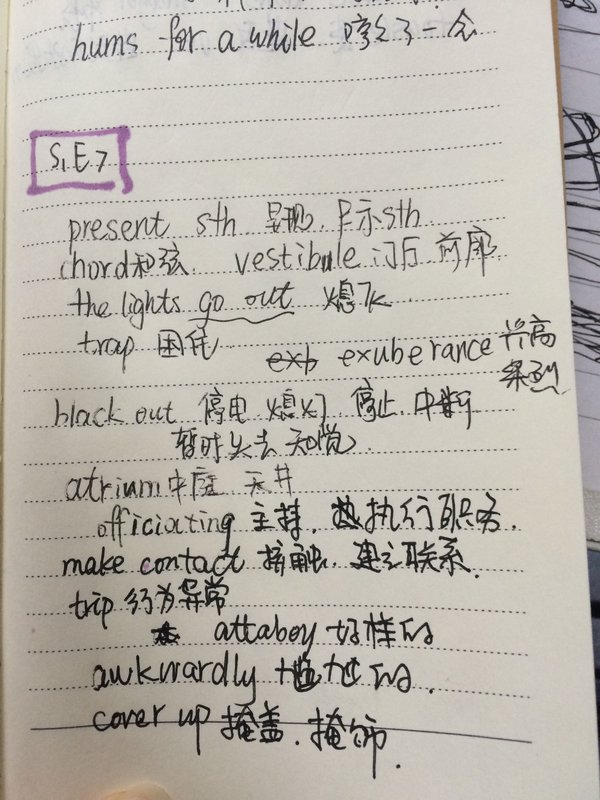 hums for a while 哼了一会
S1E7
present sth 呈现. 展示sth
chord和弦 vestibule 门厅 前廊
the lights go out 熄灭
trap 困住
exuberance 兴高采烈
black out 停电 熄灯 停止 中断
暂时失去知觉
atrium中庭 天井
officiating 主持. 执行职务.
make contact 接触. 建立联系.
trip 行为异常
attaboy 好样的
awkwardly 尴尬的.
cover up 掩盖. 掩饰.